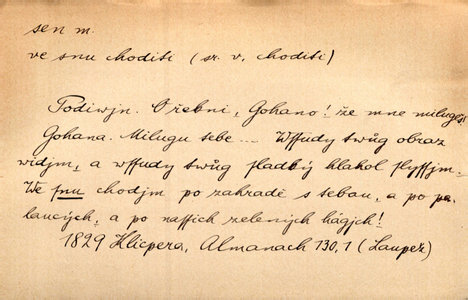 sen m.
ve snu choditi (sr. v. choditi)
Podiwjn. O řebni, Gohano! že mne milugeš
Gohana. Milugu tebe ... Wssudy twůg obraz
widjm, a wssudy twůg sladký hlahol slyssjm.
We snu chodjm po zahradě s tebau, a po pa-
laucých, a po nassich zelených hágjch!
1829 Klicpera, Almanach 130, 1 (Laupež)